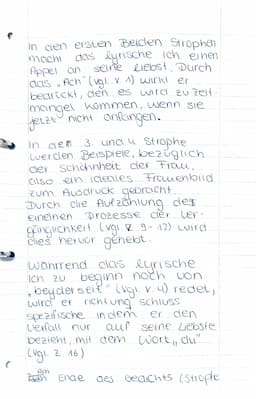 In den ersten Beiden Strophen
macht das lyrische Ich einen
Appel an seine liebst. Durch
das „Ach" (vgl. V. 1) wirkt er
bedrückt, den es wird zu Zeit-
mangel kommen, wenn sie
jetzt nicht anfangen.
In der 3. und 4 Strophe
werden Beispiele, bezüglich
der Schönheit der Frau,
also ein ideales Frauenbild
zum Ausdruck gebracht.
Durch die Aufzählung des
eineinen Prozesse der Ver-
gänglichkeit (vgl. V. 9-12) wird
dies hervor gehebt.
Während das lyrische
Ich zu beginn noch von
„beyderseit" (vgl. V. 4) redet,
wird er richtung schluss
spezifische indem er den
Verfall nur auf seine Liebste
bezieht, mit dem Wort „du"
(vgl. Z. 16)
Am Ende des Gedichts (Strophe